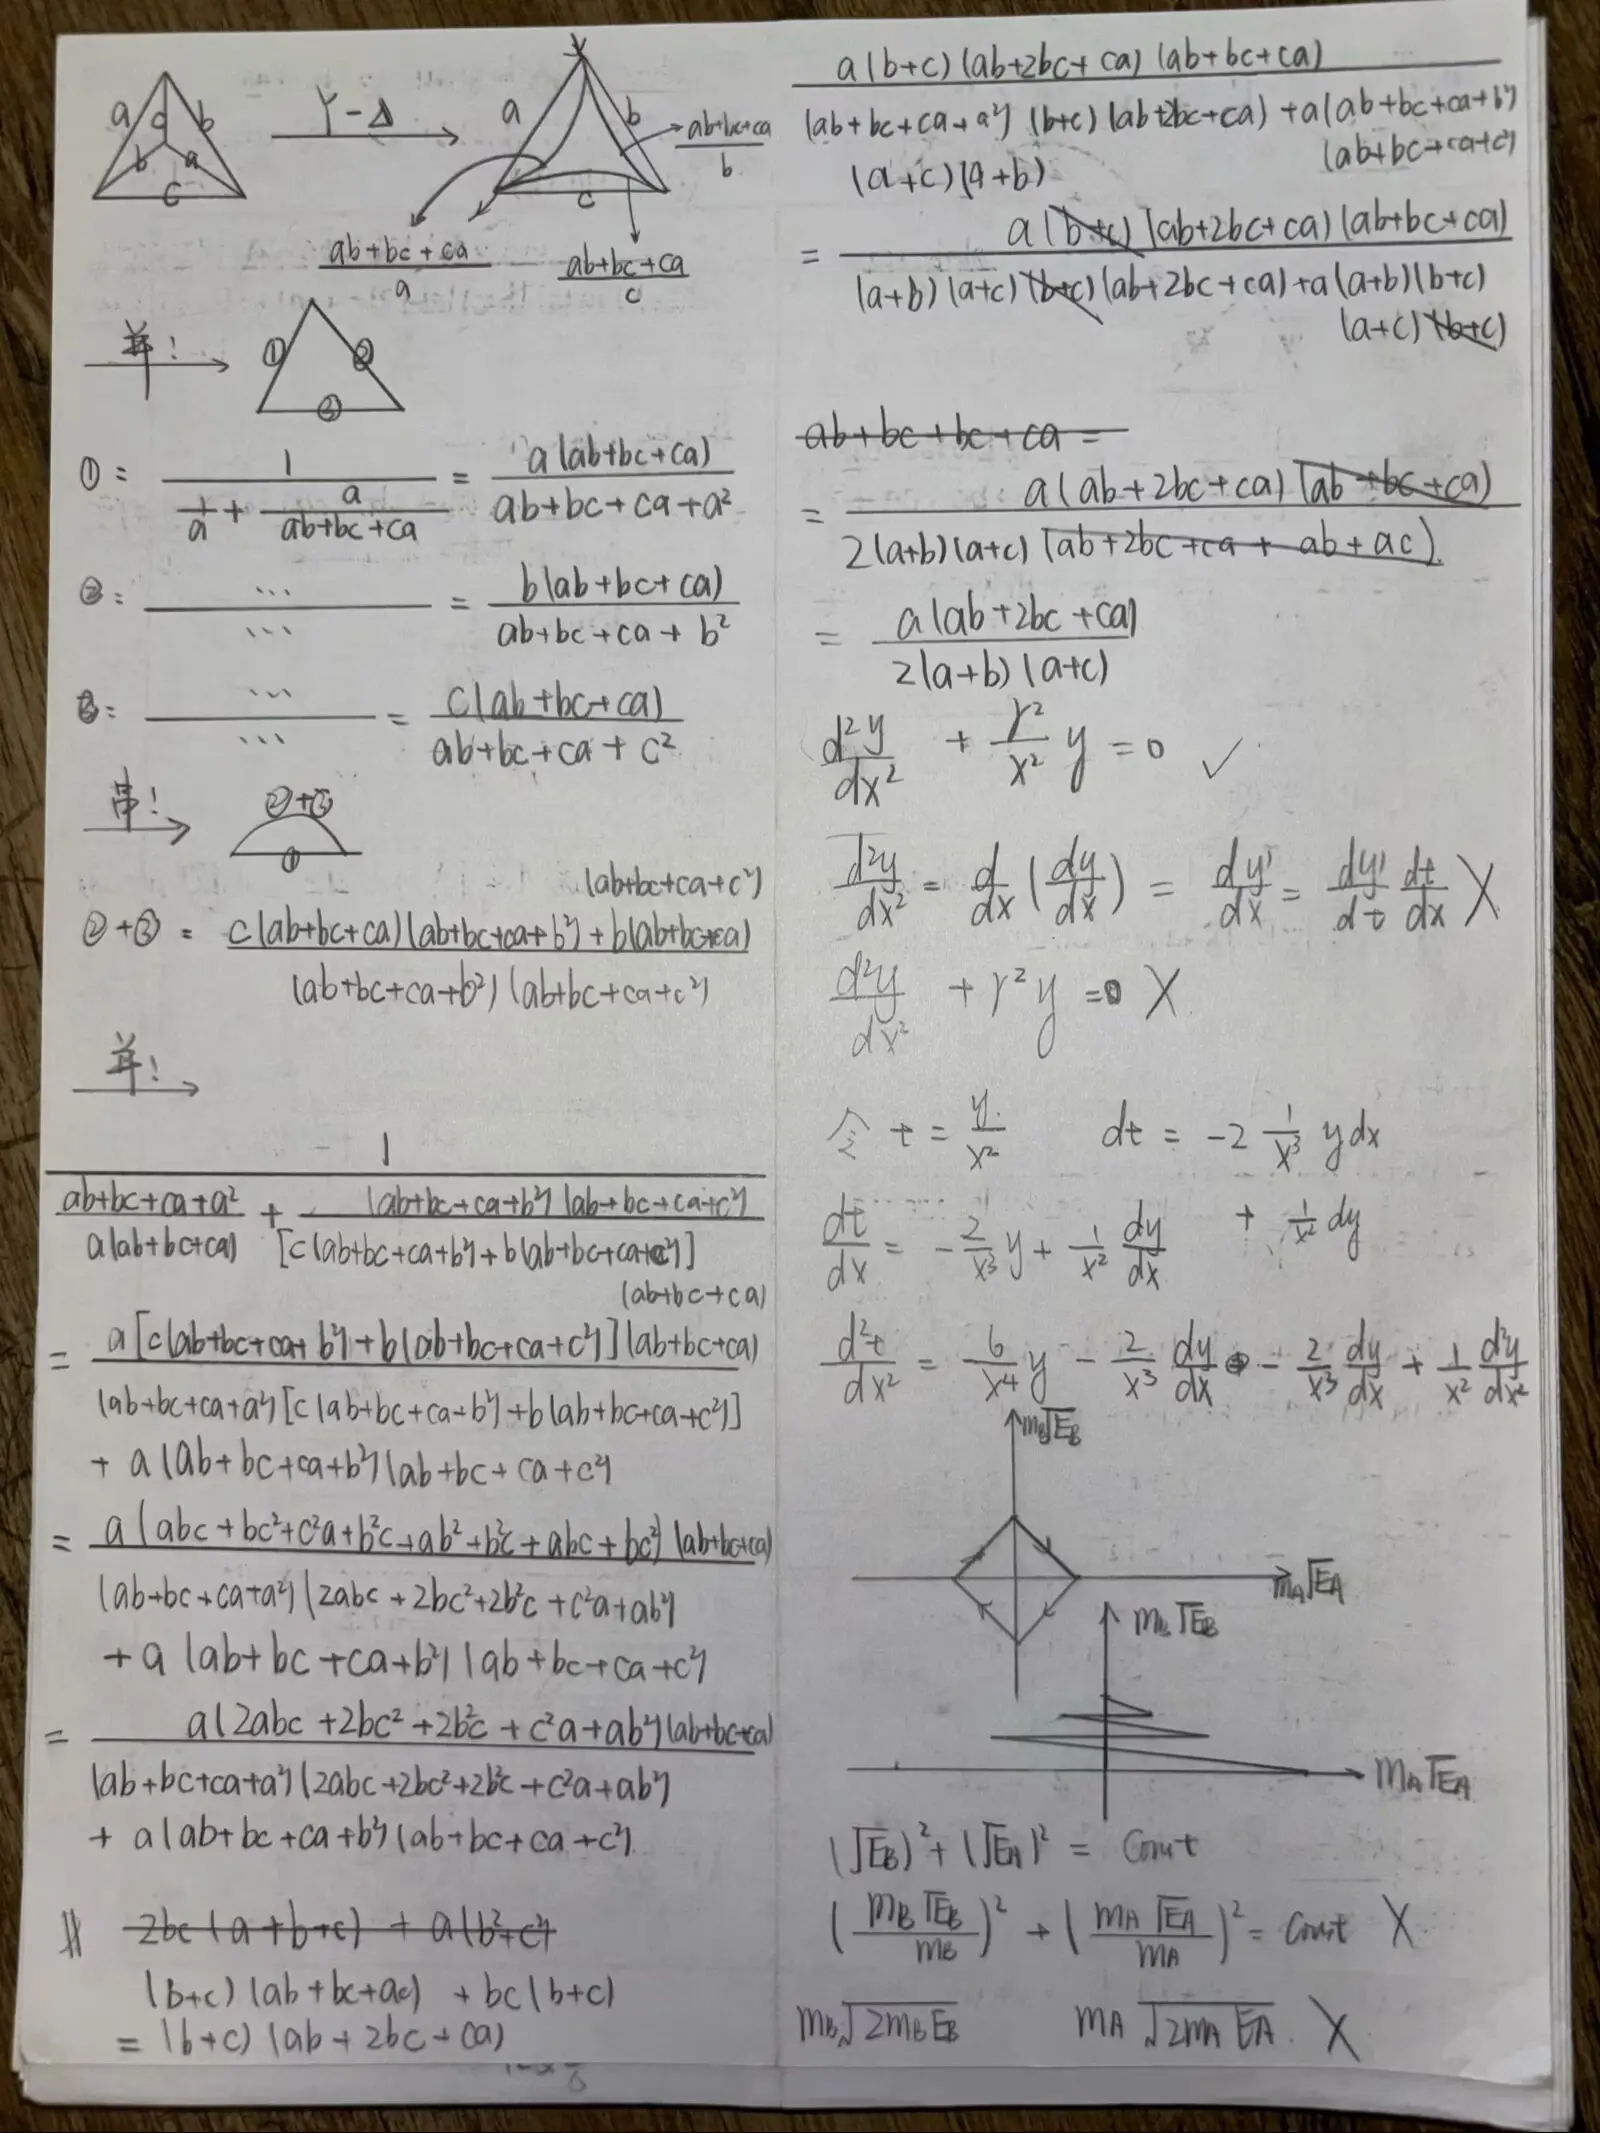 a c b
b a
c
Y-Δ
a b
c
ab+bc+ca / b
ab+bc+ca / a
ab+bc+ca / c
并!
① ②
③
① = 1 / (1/a + a/(ab+bc+ca)) = a(ab+bc+ca) / (ab+bc+ca+a²)
②: ... / ... = b(ab+bc+ca) / (ab+bc+ca+b²)
③: ... / ... = c(ab+bc+ca) / (ab+bc+ca+c²)
串!
②+③
①
(ab+bc+ca+c²)
②+③ = c(ab+bc+ca)(ab+bc+ca+b²)+b(ab+bc+ca) / (ab+bc+ca+b²)(ab+bc+ca+c²)
并!
1
(ab+bc+ca+a²) / a(ab+bc+ca) + (ab+bc+ca+b²)(ab+bc+ca+c²) / [c(ab+bc+ca+b²)+b(ab+bc+ca+c²)]
(ab+bc+ca)
= a[c(ab+bc+ca+b²)+b(ab+bc+ca+c²)](ab+bc+ca)
(ab+bc+ca+a²)[c(ab+bc+ca+b²)+b(ab+bc+ca+c²)]
+ a(ab+bc+ca+b²)(ab+bc+ca+c²)
= a(abc+bc²+c²a+b²c+ab²+b²c+abc+bc²)(ab+bc+ca)
(ab+bc+ca+a²)(2abc+2bc²+2b²c+c²a+ab²)
+a(ab+bc+ca+b²)(ab+bc+ca+c²)
= a(2abc+2bc²+2b²c+c²a+ab²)(ab+bc+ca)
(ab+bc+ca+a²)(2abc+2bc²+2b²c+c²a+ab²)
+ a(ab+bc+ca+b²)(ab+bc+ca+c²)
2bc(a+b+c) + a(b²+c²)
(b+c)(ab+bc+ac) + bc(b+c)
= (b+c)(ab+2bc+ca)
a(b+c)(ab+2bc+ca)(ab+bc+ca)
(ab+bc+ca+a²)(b+c)(ab+2bc+ca)+a(ab+bc+ca+b²)
(ab+bc+ca+c²)
(a+c)(a+b)
= a(b+c)(ab+2bc+ca)(ab+bc+ca)
(a+b)(a+c)(b+c)(ab+2bc+ca)+a(a+b)(b+c)
(a+c)(b+c)
ab+bc+bc+ca=
= a(ab+2bc+ca)(ab+bc+ca)
2(a+b)(a+c)(ab+2bc+ca+ab+ac)
= a(ab+2bc+ca) / 2(a+b)(a+c)
d²y/dx² + γ²/x² y = 0 ✓
d²y/dx² = d/dx (dy/dx) = dy'/dx = dy'/dt dt/dx X
d²y/dx² + γ²y = 0 X
令 t = y/x² dt = -2 1/x³ y dx
+ 1/x² dy
dt/dx = -2/x³ y + 1/x² dy/dx
d²t/dx² = 6/x⁴ y - 2/x³ dy/dx - 2/x³ dy/dx + 1/x² d²y/dx²
m_B√E_B
m_A√E_A
m_B√E_B
m_A√E_A
(√E_B)² + (√E_A)² = Const
(m_B√E_B / m_B)² + (m_A√E_A / m_A)² = Const X
m_B√2m_BE_B m_A√2m_AE_A. X